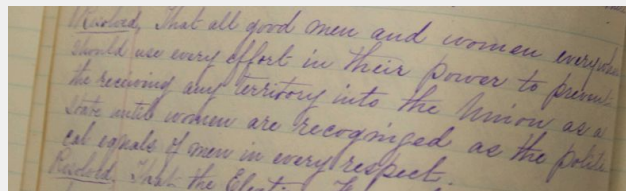 Resolved, That all good men and women everywhere
should use every effort in their power to prevent
the receiving any territory into the Union as a
State until women are recognized as the politi-
cal equals of men in every respect.
Resolved, That the